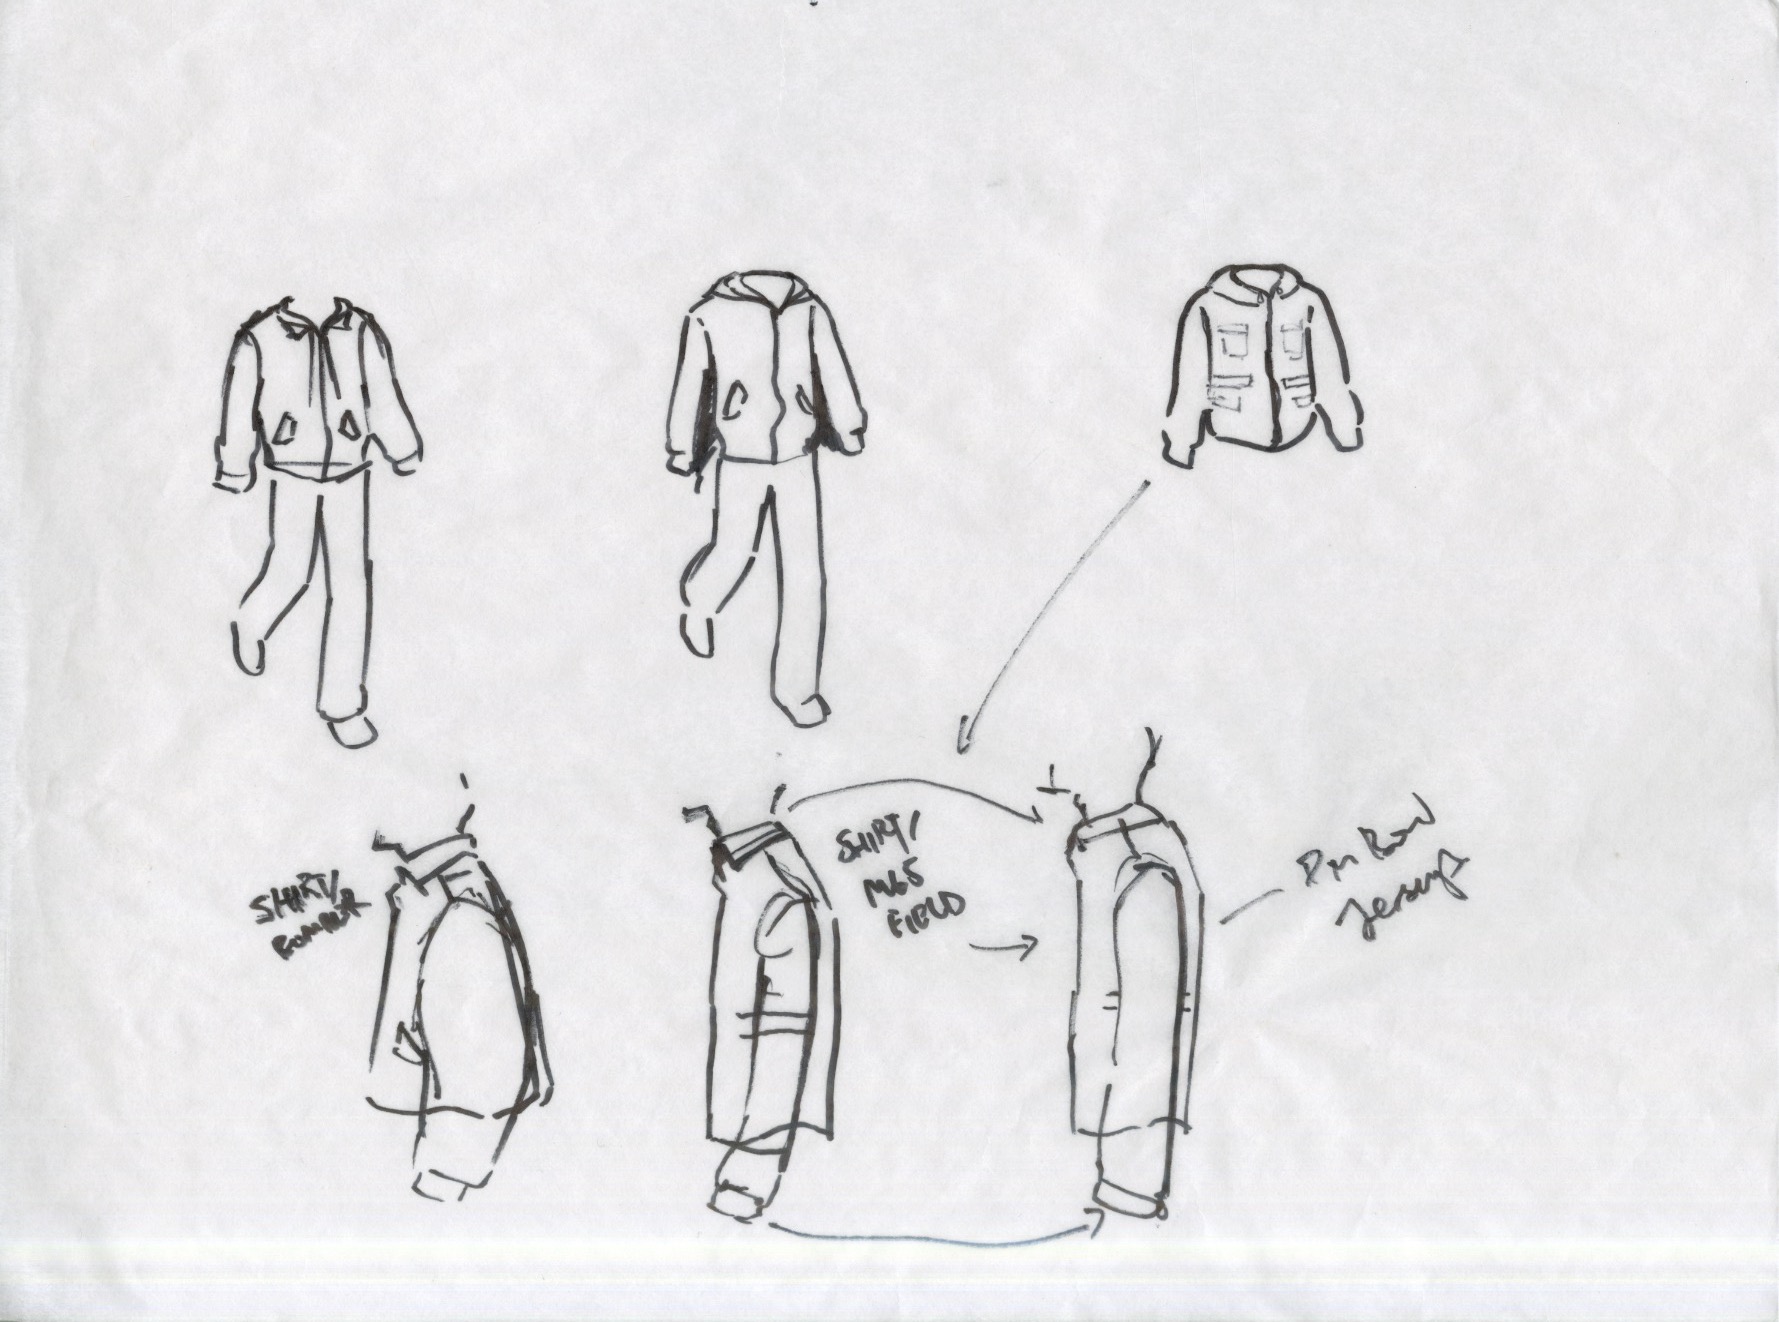 SHIRT/
BOMBER
SHIRT/
M65
FIELD
Jersey